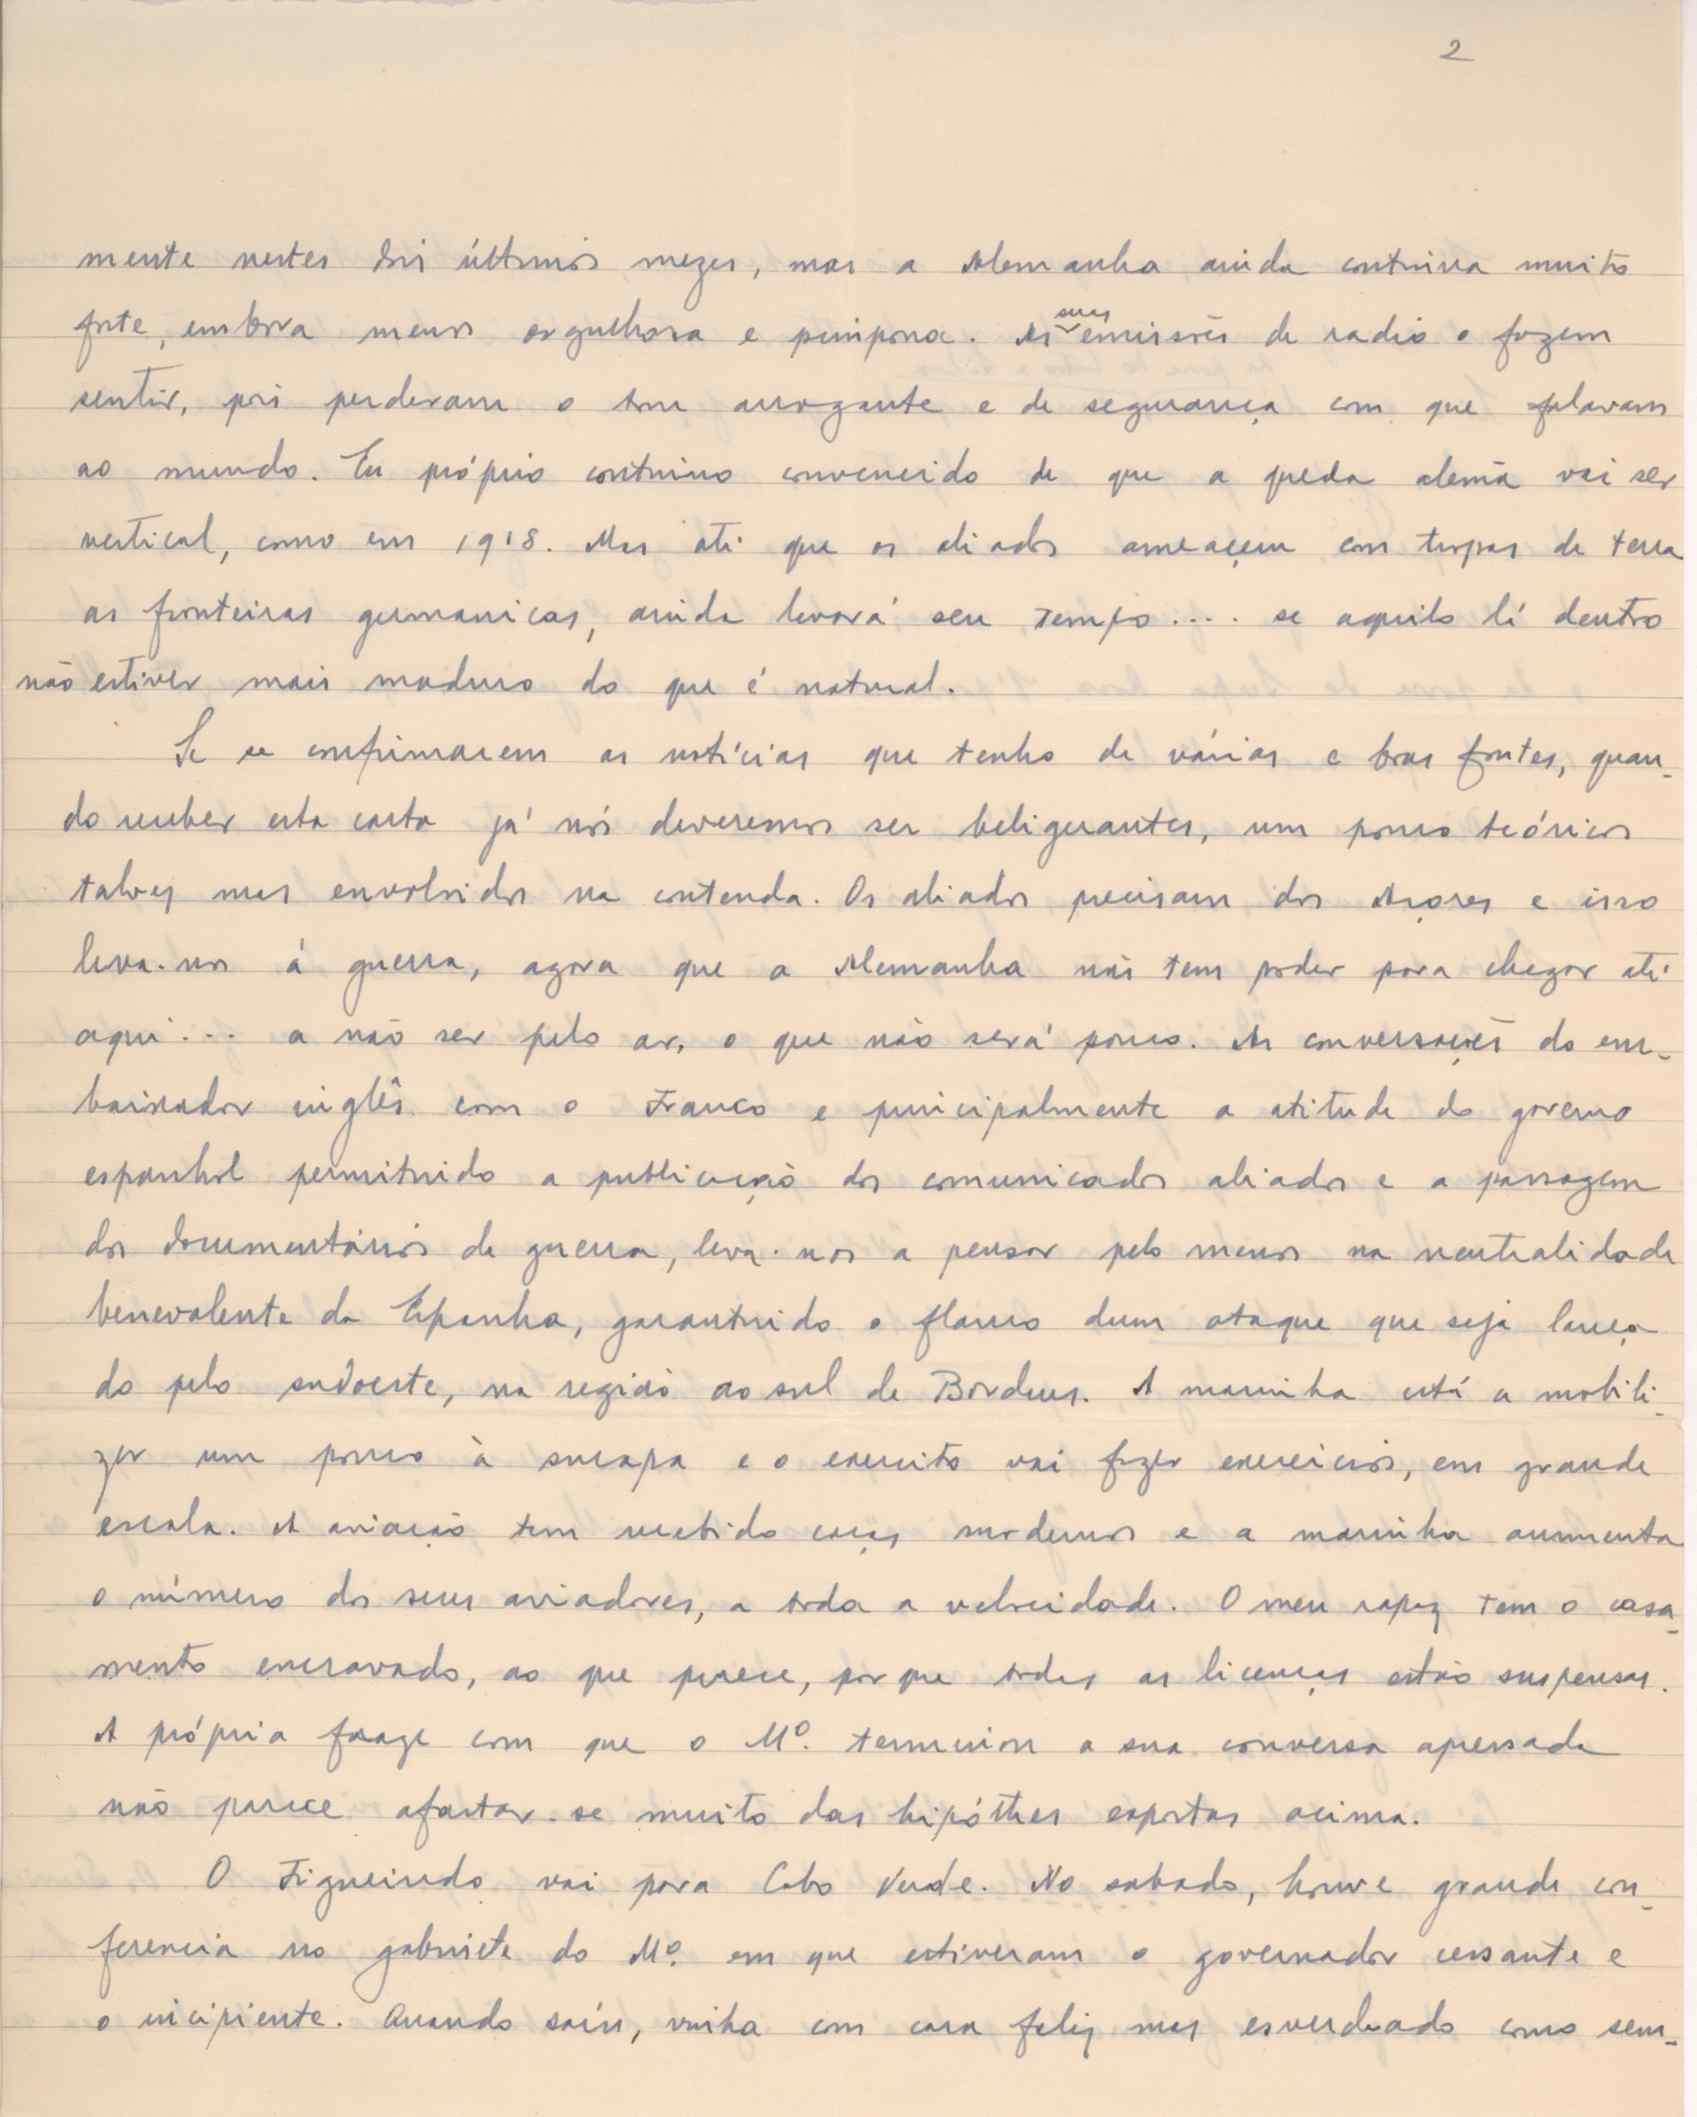 2
mente nestes dois últimos mezes, mas a Alemanha ainda continua muito
forte, embora menos orgulhosa e pimpona. As suas emissões de radio o fazem
sentir, pois perderam o tom arrogante e de segurança com que falavam
ao mundo. Eu próprio continuo convencido de que a queda alemã vai ser
vertical, como em 1918. Mas até que os aliados ameaçem com tropas de terra
as fronteiras germanicas, ainda levará seu tempo.... se aquilo lá dentro
não estiver mais maduro do que é natural.
Se se confirmarem as notícias que tenho de várias e boas fontes, quan-
do receber esta carta já nós deveremos ser beligerantes, um pouco teóricos
talvez mas envolvidos na contenda. Os aliados precisam dos Açores e isso
leva-nos á guerra, agora que a Alemanha não tem poder para chegar até
aqui... a não ser pelo ar, o que não será pouco. As conversações do em-
baixador inglês com o Franco e principalmente a atitude do governo
espanhol permitindo a publicação dos comunicados aliados e a passagem
dos documentários de guerra, leva-nos a pensar pelo menos na neutralidade
benevalente da Espanha, garantindo o flanco dum ataque que seja lança
do pelo sudoeste, na região ao sul de Bordeus. A marinha está a mobili-
zar um pouco à sucapa e o exercito vai fazer exercicios, em grande
escala. A aviação tem recebido caças modernos e a marinha aumenta
o número dos seus aviadores, a toda a velocidade. O meu rapaz tem o casa-
mento encravado, ao que parece, porque todas as licenças estão suspensas.
A própria fraze com que o Mº. terminou a sua conversa apressada
não parece afastar-se muito das hipóthes expostas acima.
O Figueiredo vai para Cabo Verde. No sabado, houve grande con-
ferencia no gabinete do Mº. em que estiveram o governador cessante e
o incipiente. Quando saíu, vinha com cara feliz mas esverdeado como sem-